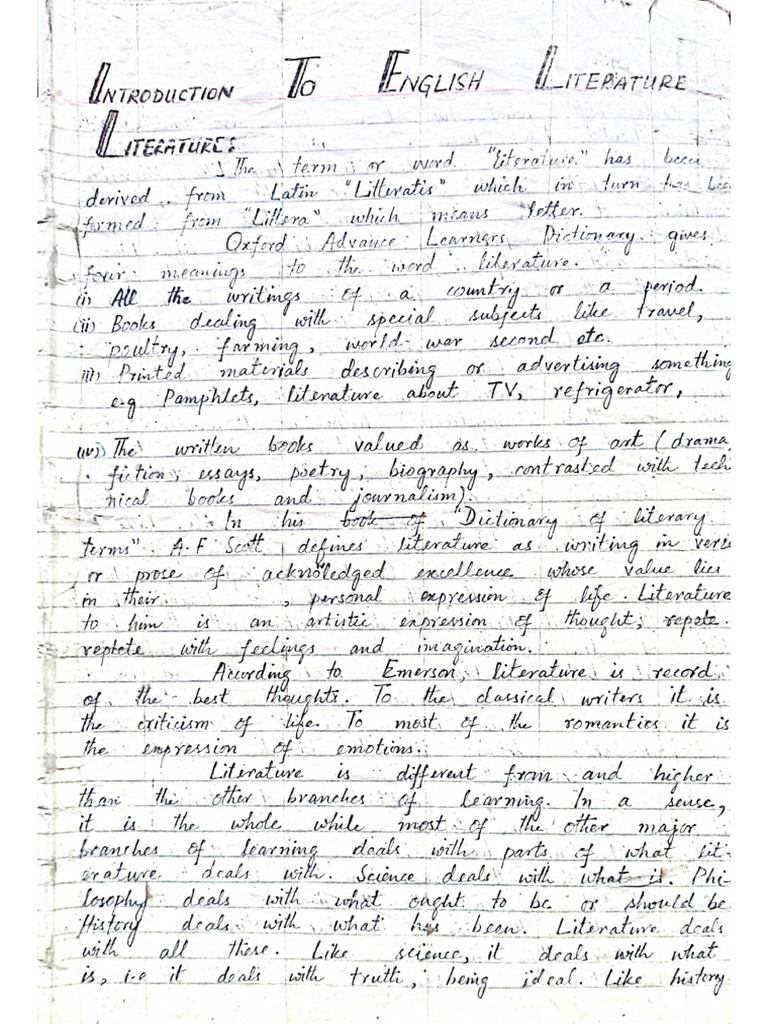 INTRODUCTION TO ENGLISH LITERATURE
LITERATURE:
The term or word "literature" has been
derived from Latin "Litteratis" which in turn has bee
formed from "Littera" which means letter.
Oxford Advance Learners Dictionary gives
four meanings to the word literature.
(i) All the writings of a country or a period.
(ii) Books dealing with special subjects like travel,
poultry, farming, world war second etc.
iii) Printed materials describing or advertising something
e.g Pamphlets, literature about TV, refrigerator,
(iv) The written books valued as works of art (drama,
fiction, essays, poetry, biography, contrasted with tech
nical books and journalism).
In his book of "Dictionary of literary
terms" A.F Scott defines literature as writing in vers
or prose of acknowledged excellence whose value lies
in their , personal expression of life. Literature
to him is an artistic expression of thought, repete
replete with feelings and imagination.
Acording to Emerson, literature is record
of the best thoughts. To the classical writers it is
the criticism of life. To most of the romantics it is
the expression of emotions.
Literature is different from and higher
than the other branches of learning. In a sense,
it is the whole while most of the other major
branches of learning deals with parts of what lit-
erature deals with. Science deals with what is. Phi
losophy deals with what ought to be or should be
History deals with what has been. Literature deals
with all these. Like science, it deals with what
is, i.e it deals with truth, being ideal. Like history